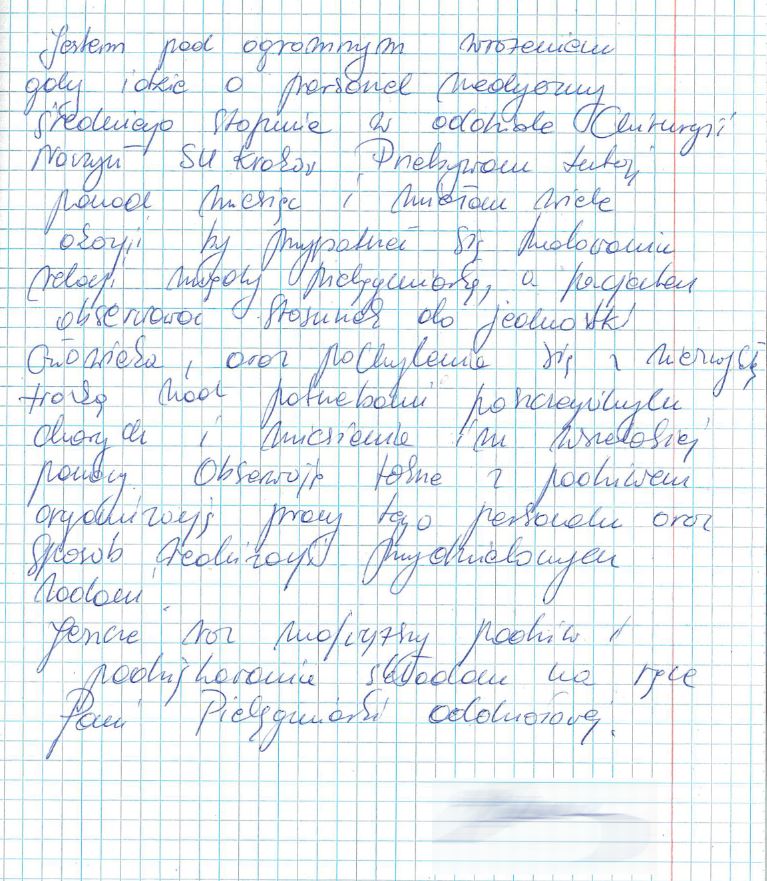 Jestem pod ogromnym wrażeniem
gdy idzie o personel medyczny
średniego stopnia w oddziale Chirurgii
Naczyń SU Kraków. Przebywam tutaj
ponad miesiąc i miałam wiele
okazji by przypatrzeć się
relacji między pielęgniarką, a pacjentem
obserwować stosunek do jednostki
człowieka, oraz pochylenie się z niezwykłą
troską nad potrzebami poszczególnych
chorych i niesienie im wszelakiej
pomocy. Obserwuję także z podziwem
organizację pracy tego personelu oraz
sposób realizacji przydzielonych
zadań.
Jeszcze raz najwyższy podziw i
podziękowanie składam na ręce
Pani Pielęgniarki oddziałowej.